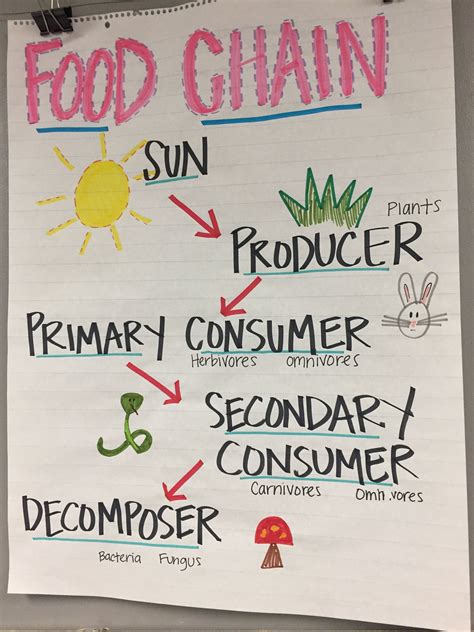 FOOD CHAIN
SUN
Plants
PRODUCER
PRIMARY CONSUMER
Herbivores omnivores
SECONDARY
CONSUMER
Carnivores Omn.vores
DECOMPOSER
Bacteria Fungus